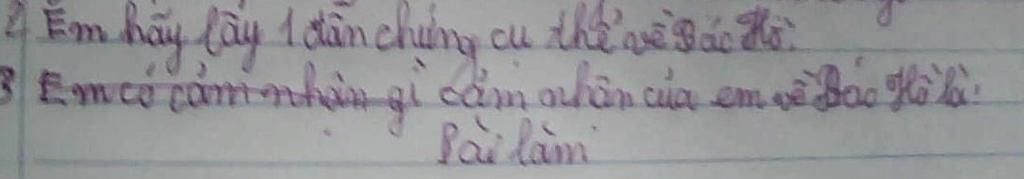 2 Em hãy lấy 1 dẫn chứng cụ thể về Bác Hồ:
3 Em có cảm nhận gì cảm nhận của em về Bác Hồ là:
Bài làm